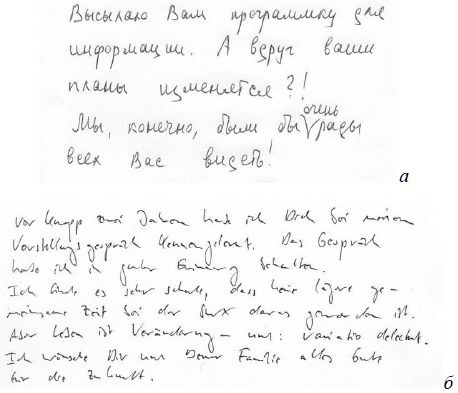 Высылаю Вам программку для
информации. А вдруг ваши
планы изменятся?!
Мы, конечно, были бы очень рады
всех Вас видеть!
а
Vor knapp zwei Jahren habe ich Dich bei meinem
Vorstellungsgespräch kennengelernt. Das Gespräch
habe ich in guter Erinnerung behalten.
Ich finde es sehr schade, dass keine längere ge-
meinsame Zeit bei der daraus geworden ist.
Aber Leben ist Veränderung – und: variatio delectat.
Ich wünsche Dir und Deiner Familie alles Gute
für die Zukunft.
б